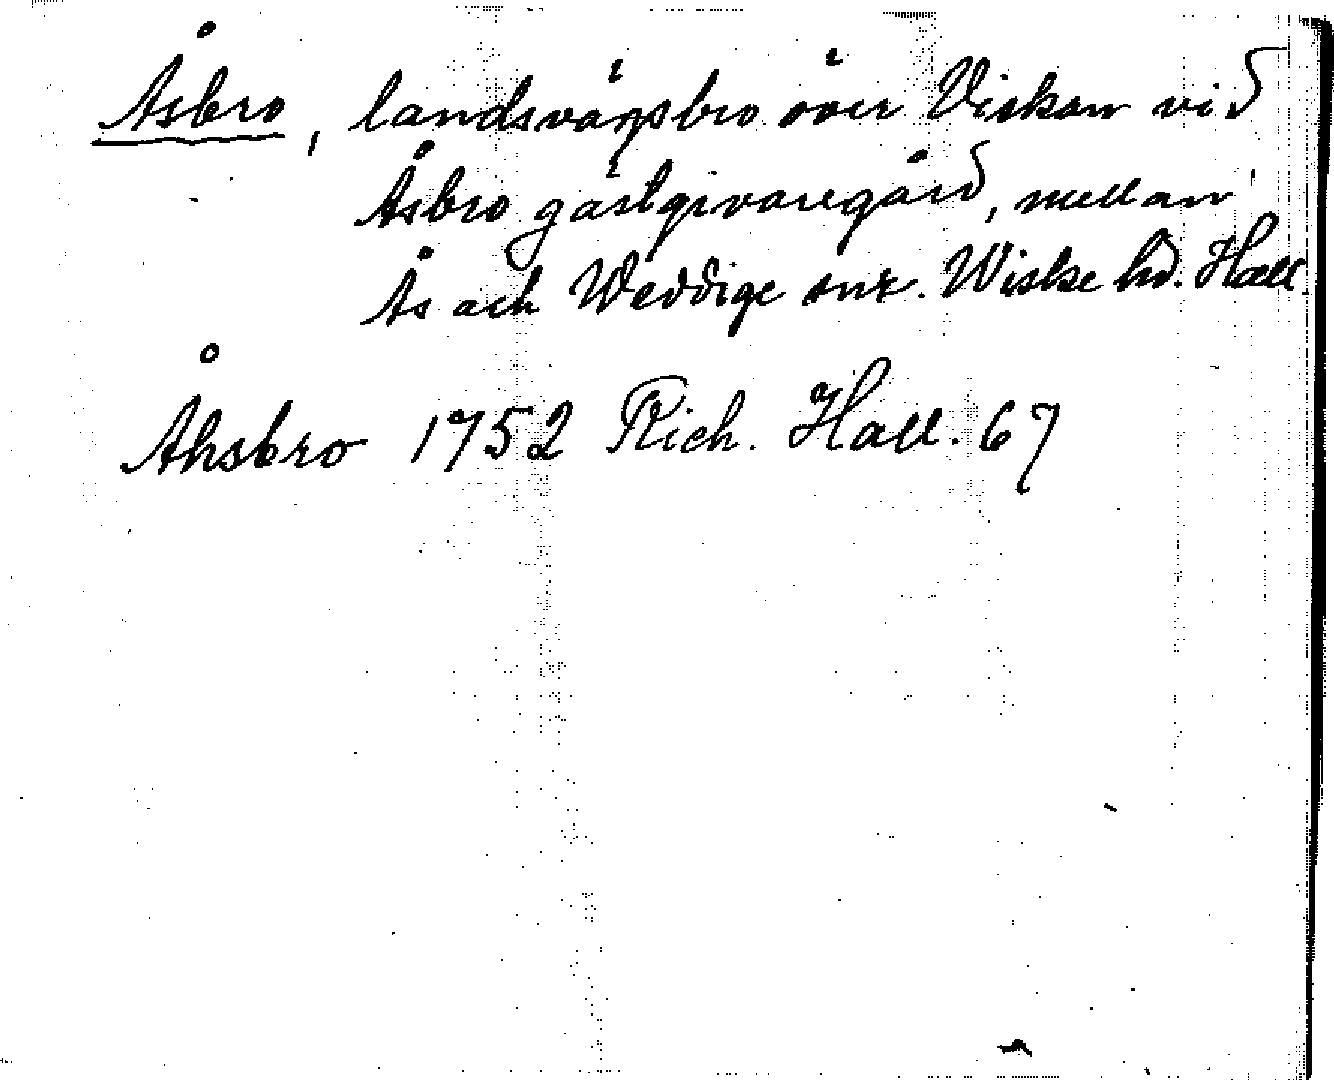 Åsbro, landsvägsbro över Viskan vid
Åsbro gästgivaregård, mellan
Ås och Weddige snr. Wiske hd. Hall.
Åhsbro 1752 Rich. Hall. 67